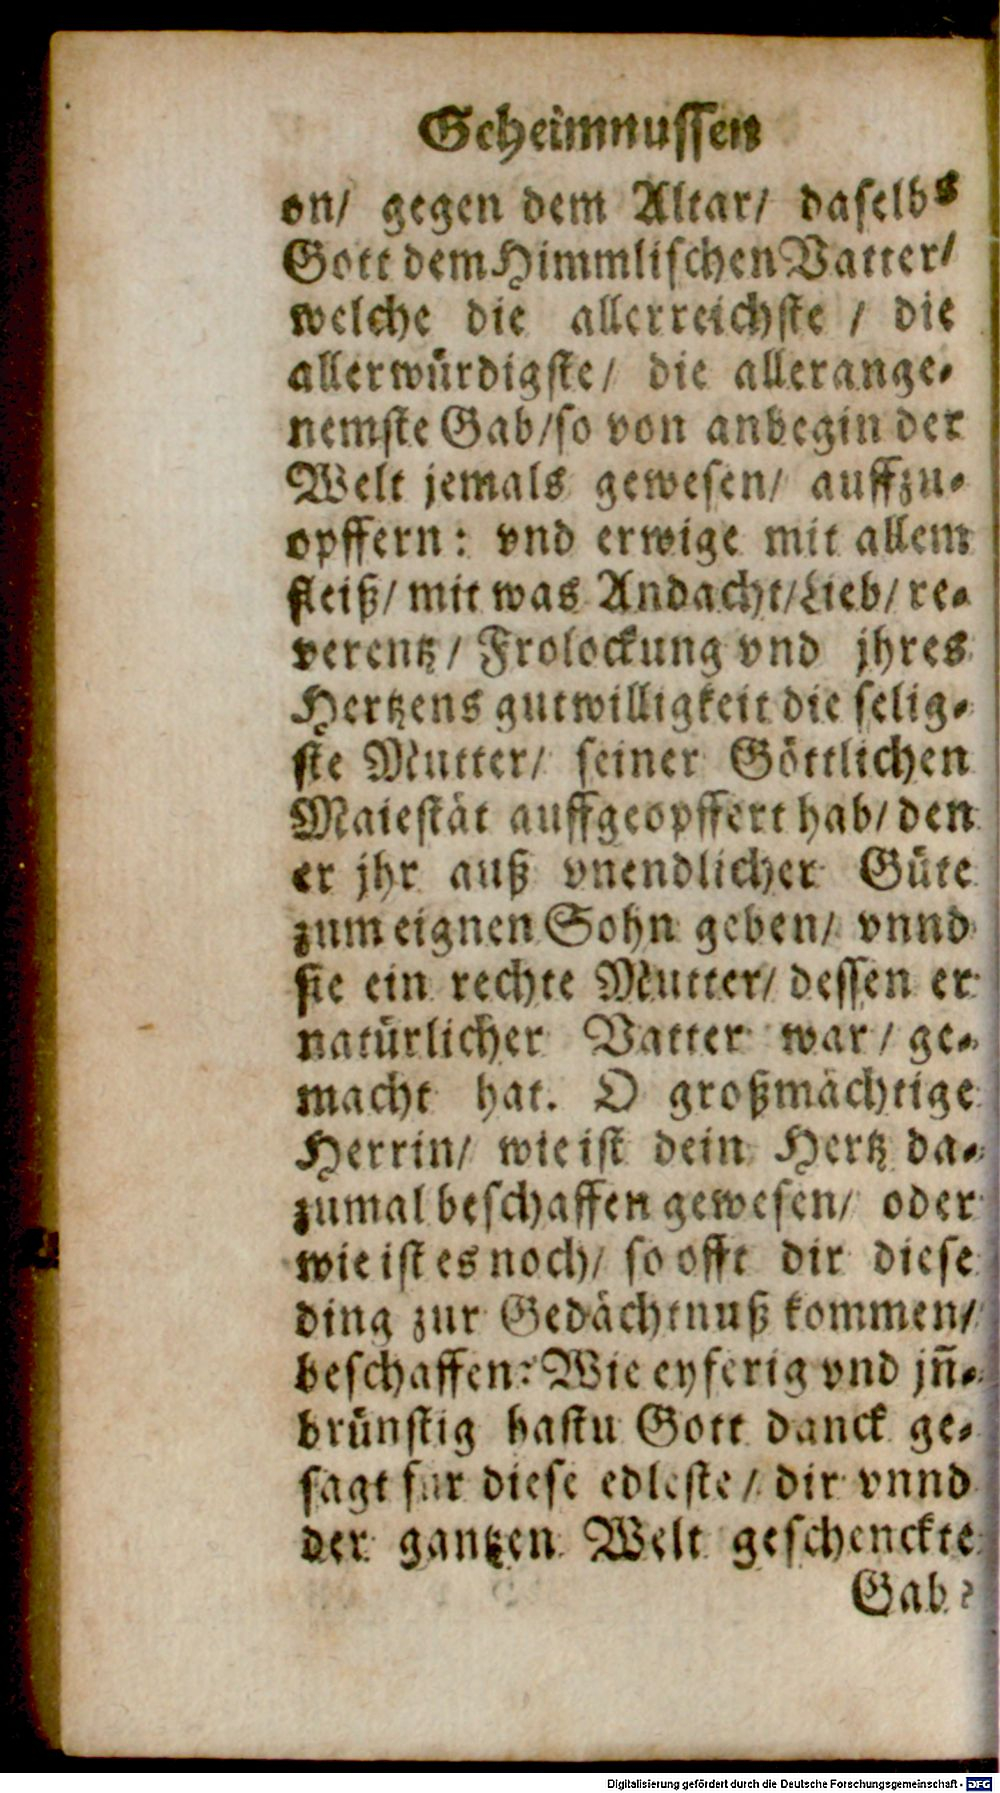 Geheimnussen
on/ gegen dem Altar/ daselbs
Gott dem Himmlischen Vatter/
welche die allerreichste / die
allerwürdigste/ die allerange-
nemste Gab/so von anbegin der
Welt jemals gewesen/ auffzu-
opffern: vnd erwige mit allem
fleiß/ mit was Andacht/Lieb/ re-
verentz/ Frolockung vnd jhres
Hertzens gutwilligkeit die selig-
ste Mutter/ seiner Göttlichen
Maiestät auffgeopffert hab/ den
er jhr auß vnendlicher Güte
zum eignen Sohn geben/ vnnd
sie ein rechte Mutter/ dessen er
natürlicher Vatter war/ ge-
macht hat. O großmächtige
Herrin/ wie ist dein Hertz da-
zumal beschaffen gewesen/ oder
wie ist es noch/ so offt dir diese
ding zur Gedächtnuß kommen/
beschaffen: Wie eyferig vnd jñ-
brünstig hastu Gott danck ge-
sagt für diese edleste/ dir vnnd
der gantzen Welt geschenckte
Gab?
Digitalisierung gefördert durch die Deutsche Forschungsgemeinschaft - DFG